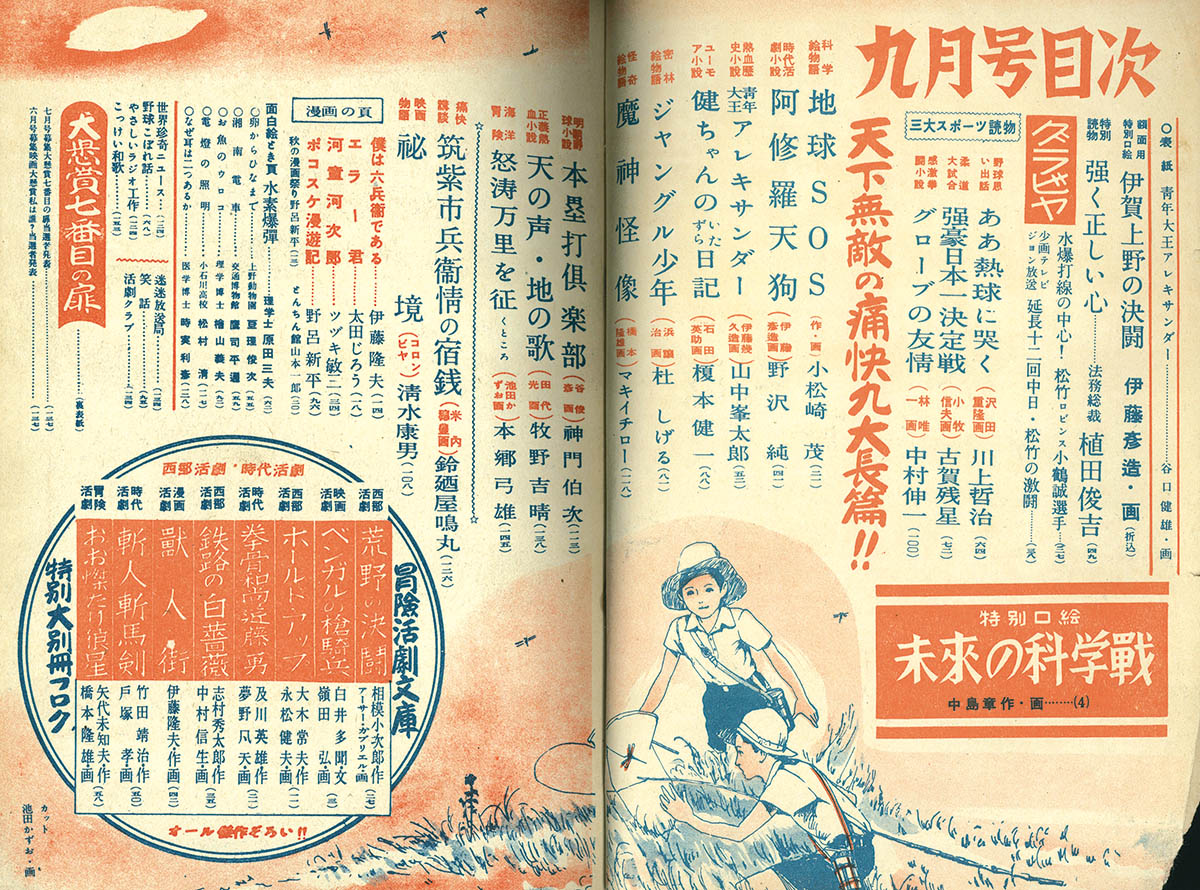 九月号目次
○表紙 青年大王アレキサンダー………谷口健雄・画
額面用特別口絵 伊賀上野の決闘 伊藤彦造・画(折込)
特別読物 強く正しい心……法務総裁 植田俊吉(四九)
グラビヤ
水爆打線の中心!松竹ロビンス小鶴誠選手…(三七)
少画テレビジョン放送 延長十二回中日・松竹の激闘……(三八)
三大スポーツ読物
野球思い出話 ああ熱球に哭く(沢田重隆画)川上哲治(六四)
柔道大試合 强豪日本一決定戦(小牧信夫画)古賀残星(七二)
感激拳闘小説 グローブの友情(林唯一画)中村伸一(一〇〇)
天下無敵の痛快九大長篇!!
科学絵物語 地球SOS(作・画)小松崎茂(二二)
時代活劇小説 阿修羅天狗(伊藤彦造画)野沢純(四一)
熱血歴史小説 青年大王アレキサンダー(伊藤幾久造画)山中峯太郎(五三)
ユーモア小説 健ちゃんのいたずら日記(石田英助画)榎本健一(八八)
密林絵物語 ジャングル少年(浜讓治画)杜しげる(八二)
怪奇絵物語 魔神怪像(橋本隆雄画)マキイチロー(一一八)
特別口絵
未來の科学戰
中島章作・画………(4)
明朗野球小説 本塁打倶楽部(谷俊彥画)神門伯次(一一三)
正義熱血小説 天の声・地の歌(田代光画)牧野吉晴(三八)
海洋冒険 怒涛万里を征くところ(池田かずお画)本郷弓雄(一四五)
痛快講談 筑紫市兵衞情の宿銭(米内穂豊画)鈴廼屋鳴丸(一二六)
映画物語 祕境(コロンビヤ)清水康男(一〇八)
漫画の頁
僕は六兵衞である…………伊藤隆夫(一四)
エラー君………太田じろう(八一)
河童河次郎………ツヅキ敏三(三四)
ポコスケ漫遊記………野呂新平(九六)
秋の漫画祭り 野呂新平(一三) とんちん館 山本一郎(三〇)
面白絵とき頁 水素爆彈………理学士 原田三夫(六三)
○卵からひなまで………上野動物園 亘理俊次
○湘南電車………交通博物館 鷹司平通(五九)
○お魚のウロコ………理学博士 檜山義夫
○電燈の照明………小石川高校 松村済(一一七)
○なぜ耳は二つあるか………医学博士 時実利彦(一三八)
世界珍奇ニュース……(三四)
野球こぼれ話………(八八)
やさしいラジオ工作……(一四四)
こっけい和歌………(一五三)
迷迷放送局………(一二四)
笑話………(九五)
活劇クラブ………(一五四)
大懸賞七番目の扉………(裏表紙)
七月号募集大懸賞七番目の扉当選者発表………(一三七)
六月号募集映画大懸賞私は誰?当選者発表………(一三七)
西部活劇・時代活劇
冒險活劇文庫
西部活劇 荒野の決闘 相模小次郎・作 アーサー・ガブリエル・画(二七)
映画活劇 ベンガルの槍騎兵 白井多聞・文 嶺田弘・画(三)
西部活劇 ホールドアップ 大木常夫・作 永松健夫・画(一一)
時代活劇 拳骨和尚近藤勇 及川英雄・作 夢野凡天・画(二一)
西部活劇 鉄路の白薔薇 志村秀太郎・作 中村信生・画(三五)
漫画活劇 獸人街 伊藤隆夫・作画(四二)
時代活劇 斬人斬馬剣 竹田靖治・作 戸塚孝・画(五〇)
冐險活劇 おお傑たり狼星 矢代未知夫・作 橋本隆雄・画(五八)
特別大別冊フロク
オール傑作ぞろい!!
カット 池田かずお・画